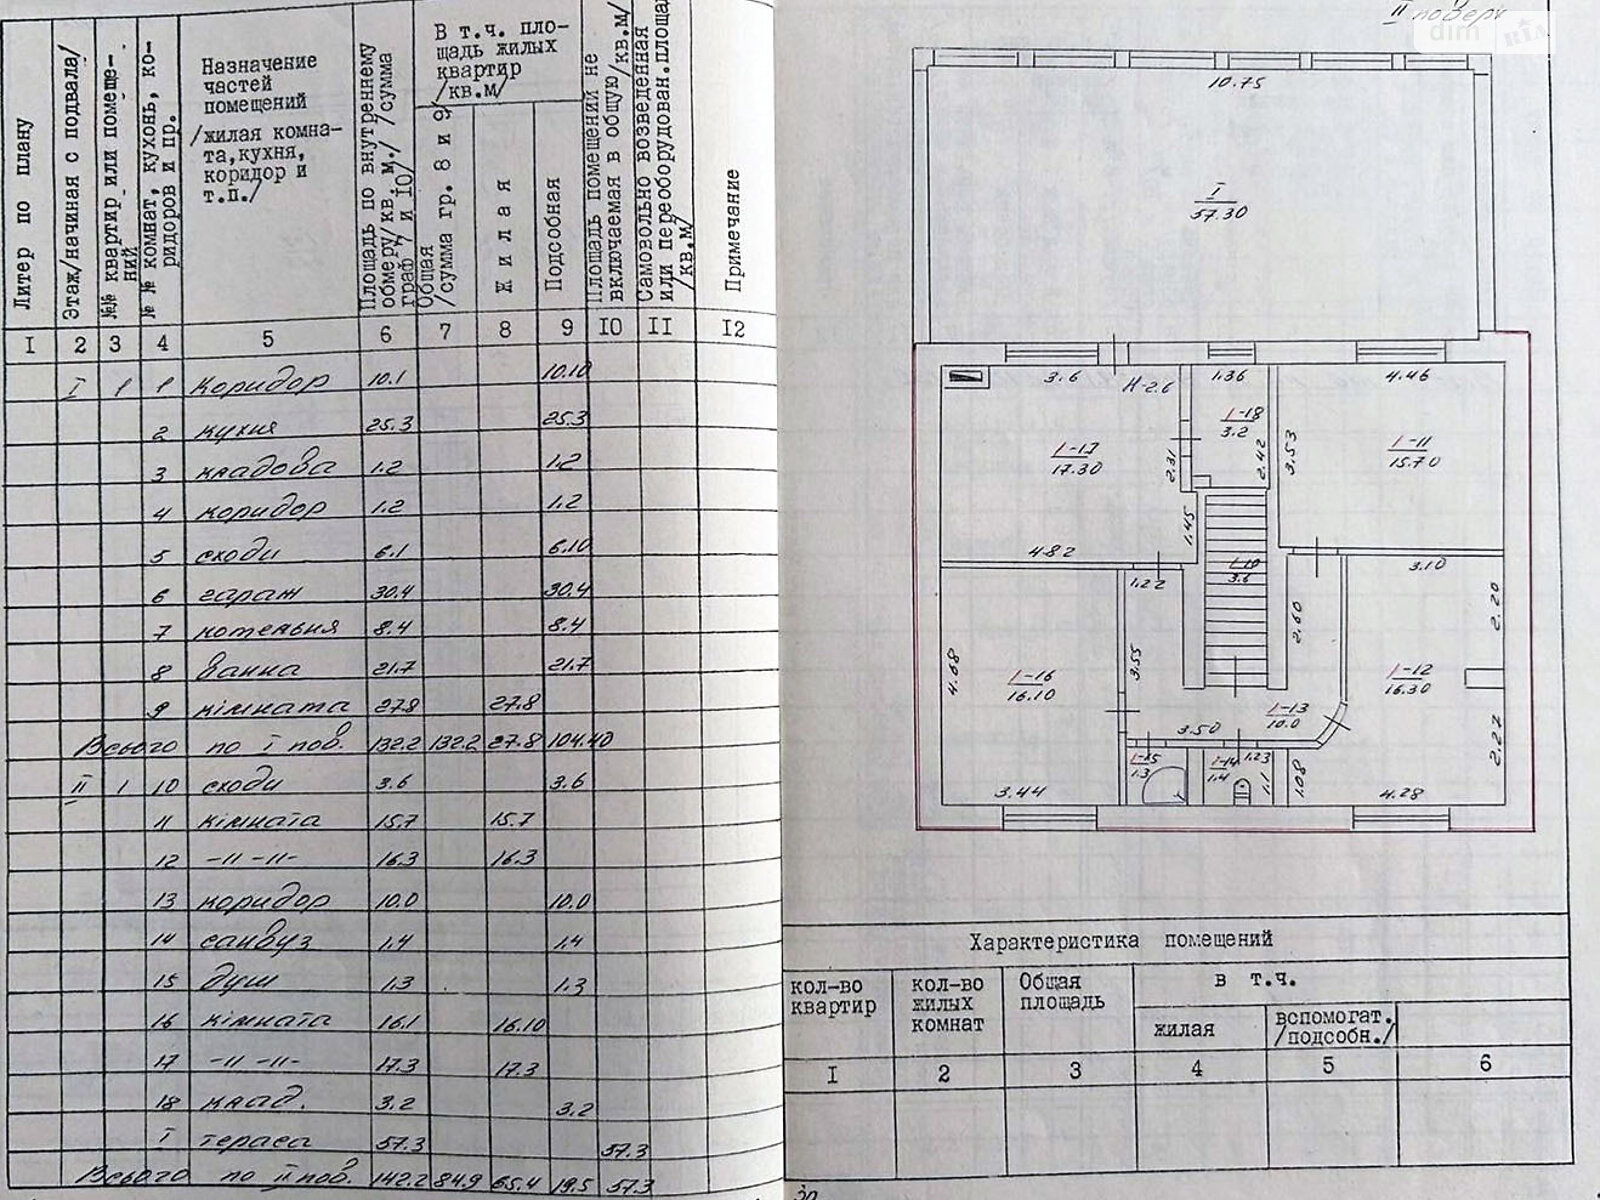 Литер по плану
Этаж/начиная с подвала/
№№ квартир или помеще-
ний
№ № комнат, кухонь, ко-
ридоров и пр.
Назначение
частей
помещений
/жилая комна-
та,кухня,
коридор и
т.п./
Площадь по внутреннему
обмеру/кв. м./ /сумма
граф 7 и 10/
В т.ч. пло-
щадь жилых
квартир
/кв.м/
Общая
/сумма гр. 8 и 9/
Жилая
Подсобная
Площадь помещений не
включаемая в общую/кв.м/
Самовольно возведенная
или переоборудован.площадь
/кв.м/
Примечание
I 2 3 4 5 6 7 8 9 IO II I2
I 1 1 коридор 10.1 10.10
2 кухня 25.3 25.3
3 кладова 1.2 1.2
4 коридор 1.2 1.2
5 сходи 6.1 6.10
6 гараж 30.4 30.4
7 котельня 8.4 8.4
8 ванна 21.7 21.7
9 кімната 27.8 27.8
Всього по I пов. 132.2 132.2 27.8 104.40
II 1 10 сходи 3.6 3.6
11 кімната 15.7 15.7
12 -11 -11- 16.3 16.3
13 коридор 10.0 10.0
14 санвуз 1.4 1.4
15 душ 1.3 1.3
16 кімната 16.1 16.10
17 -11 -11- 17.3 17.3
18 клад. 3.2 3.2
I тераса 57.3 57.3
Всього по II пов. 142.2 84.9 65.4 19.5 57.3
II поверх
dim RIA
10.75
I
57.30
3.6 H-2.6 1.36 4.46
1-18
3.2
1-17
17.30
2.31
2.42
3.53
1-11
15.70
1.45
4.82
1.22
1-10
3.6
3.10
2.20
2.60
4.68
1-16
16.10
3.55
1-12
16.30
1-13
10.0
3.50
2.22
1-15
1.3
1-14
1.4
1.23
1.1
1.08
3.44
4.28
Характеристика помещений
кол-во
квартир
кол-во
жилых
комнат
Общая
площадь
в т.ч.
жилая
вспомогат.
/подсобн./
I 2 3 4 5 6